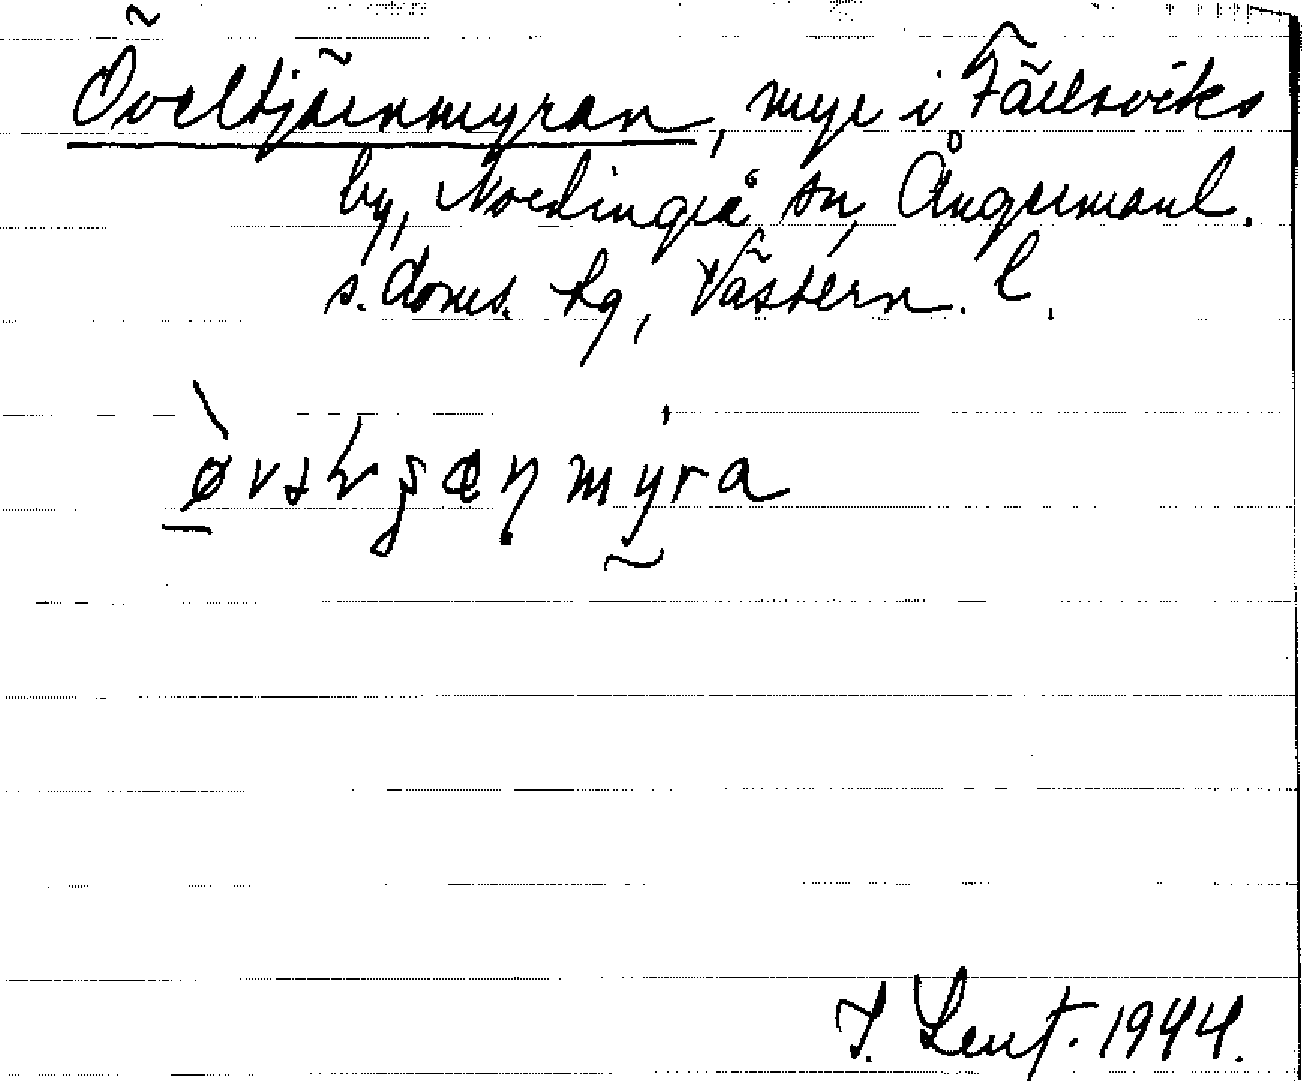 Överltjärnmyran, myr i Fällsviks
by, Nordingrå sn, Ångermanl.
s. doms. hg, Västern. l.
myra
1944.